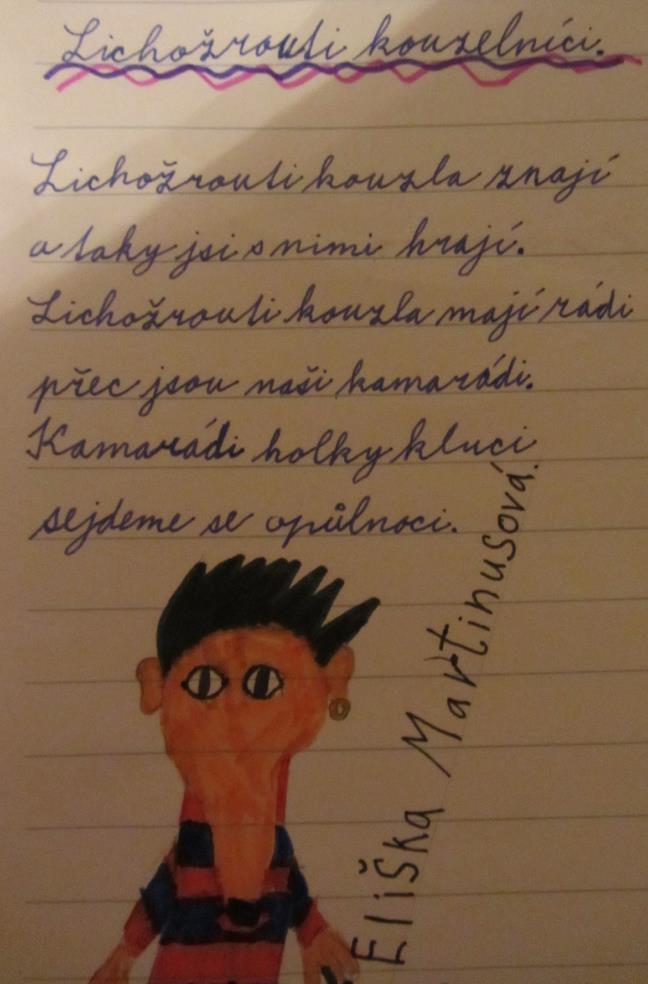 Lichožrouti kouzelníci.
Lichožrouti kouzla znají
a taky jsi s nimi hrají.
Lichožrouti kouzla mají rádi
přec jsou naši kamarádi.
Kamarádi holky kluci
sejdeme se opůlnoci.
Eliška Martinusová.